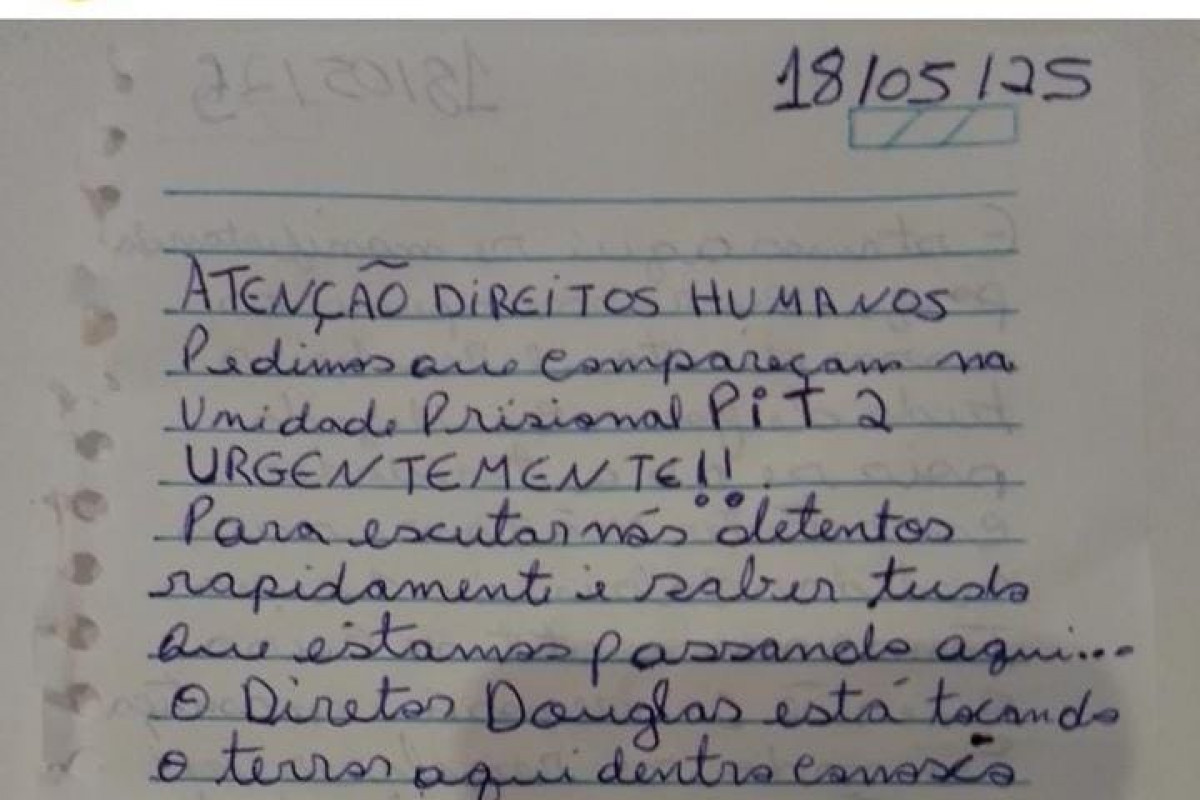 18/05/25
ATENÇÃO DIREITOS HUMANOS
Pedimos que compareçam na
Unidade Prisional PiT 2
URGENTEMENTE!!
Para escutar nós detentos
rapidamente e saber tudo
que estamos passando aqui...
O Diretor Douglas está tocando
o terror aqui dentro conosco